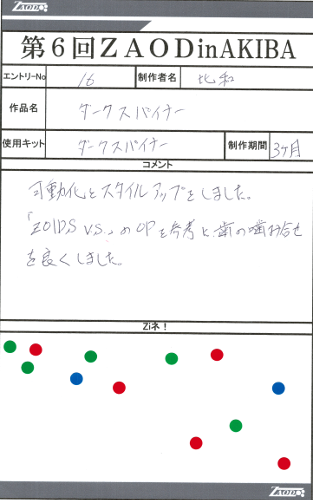 ZAOD
第6回ZAODinAKIBA
エントリーNo 16 制作者名 比和
作品名 ダークスパイナー
使用キット ダークスパイナー 制作期間 3ヶ月
コメント
可動化とスタイルアップをしました。
「ZOIDS VS.」のOPを参考に、歯の噛み合せ
を良くしました。
Ziネ!
ZAOD